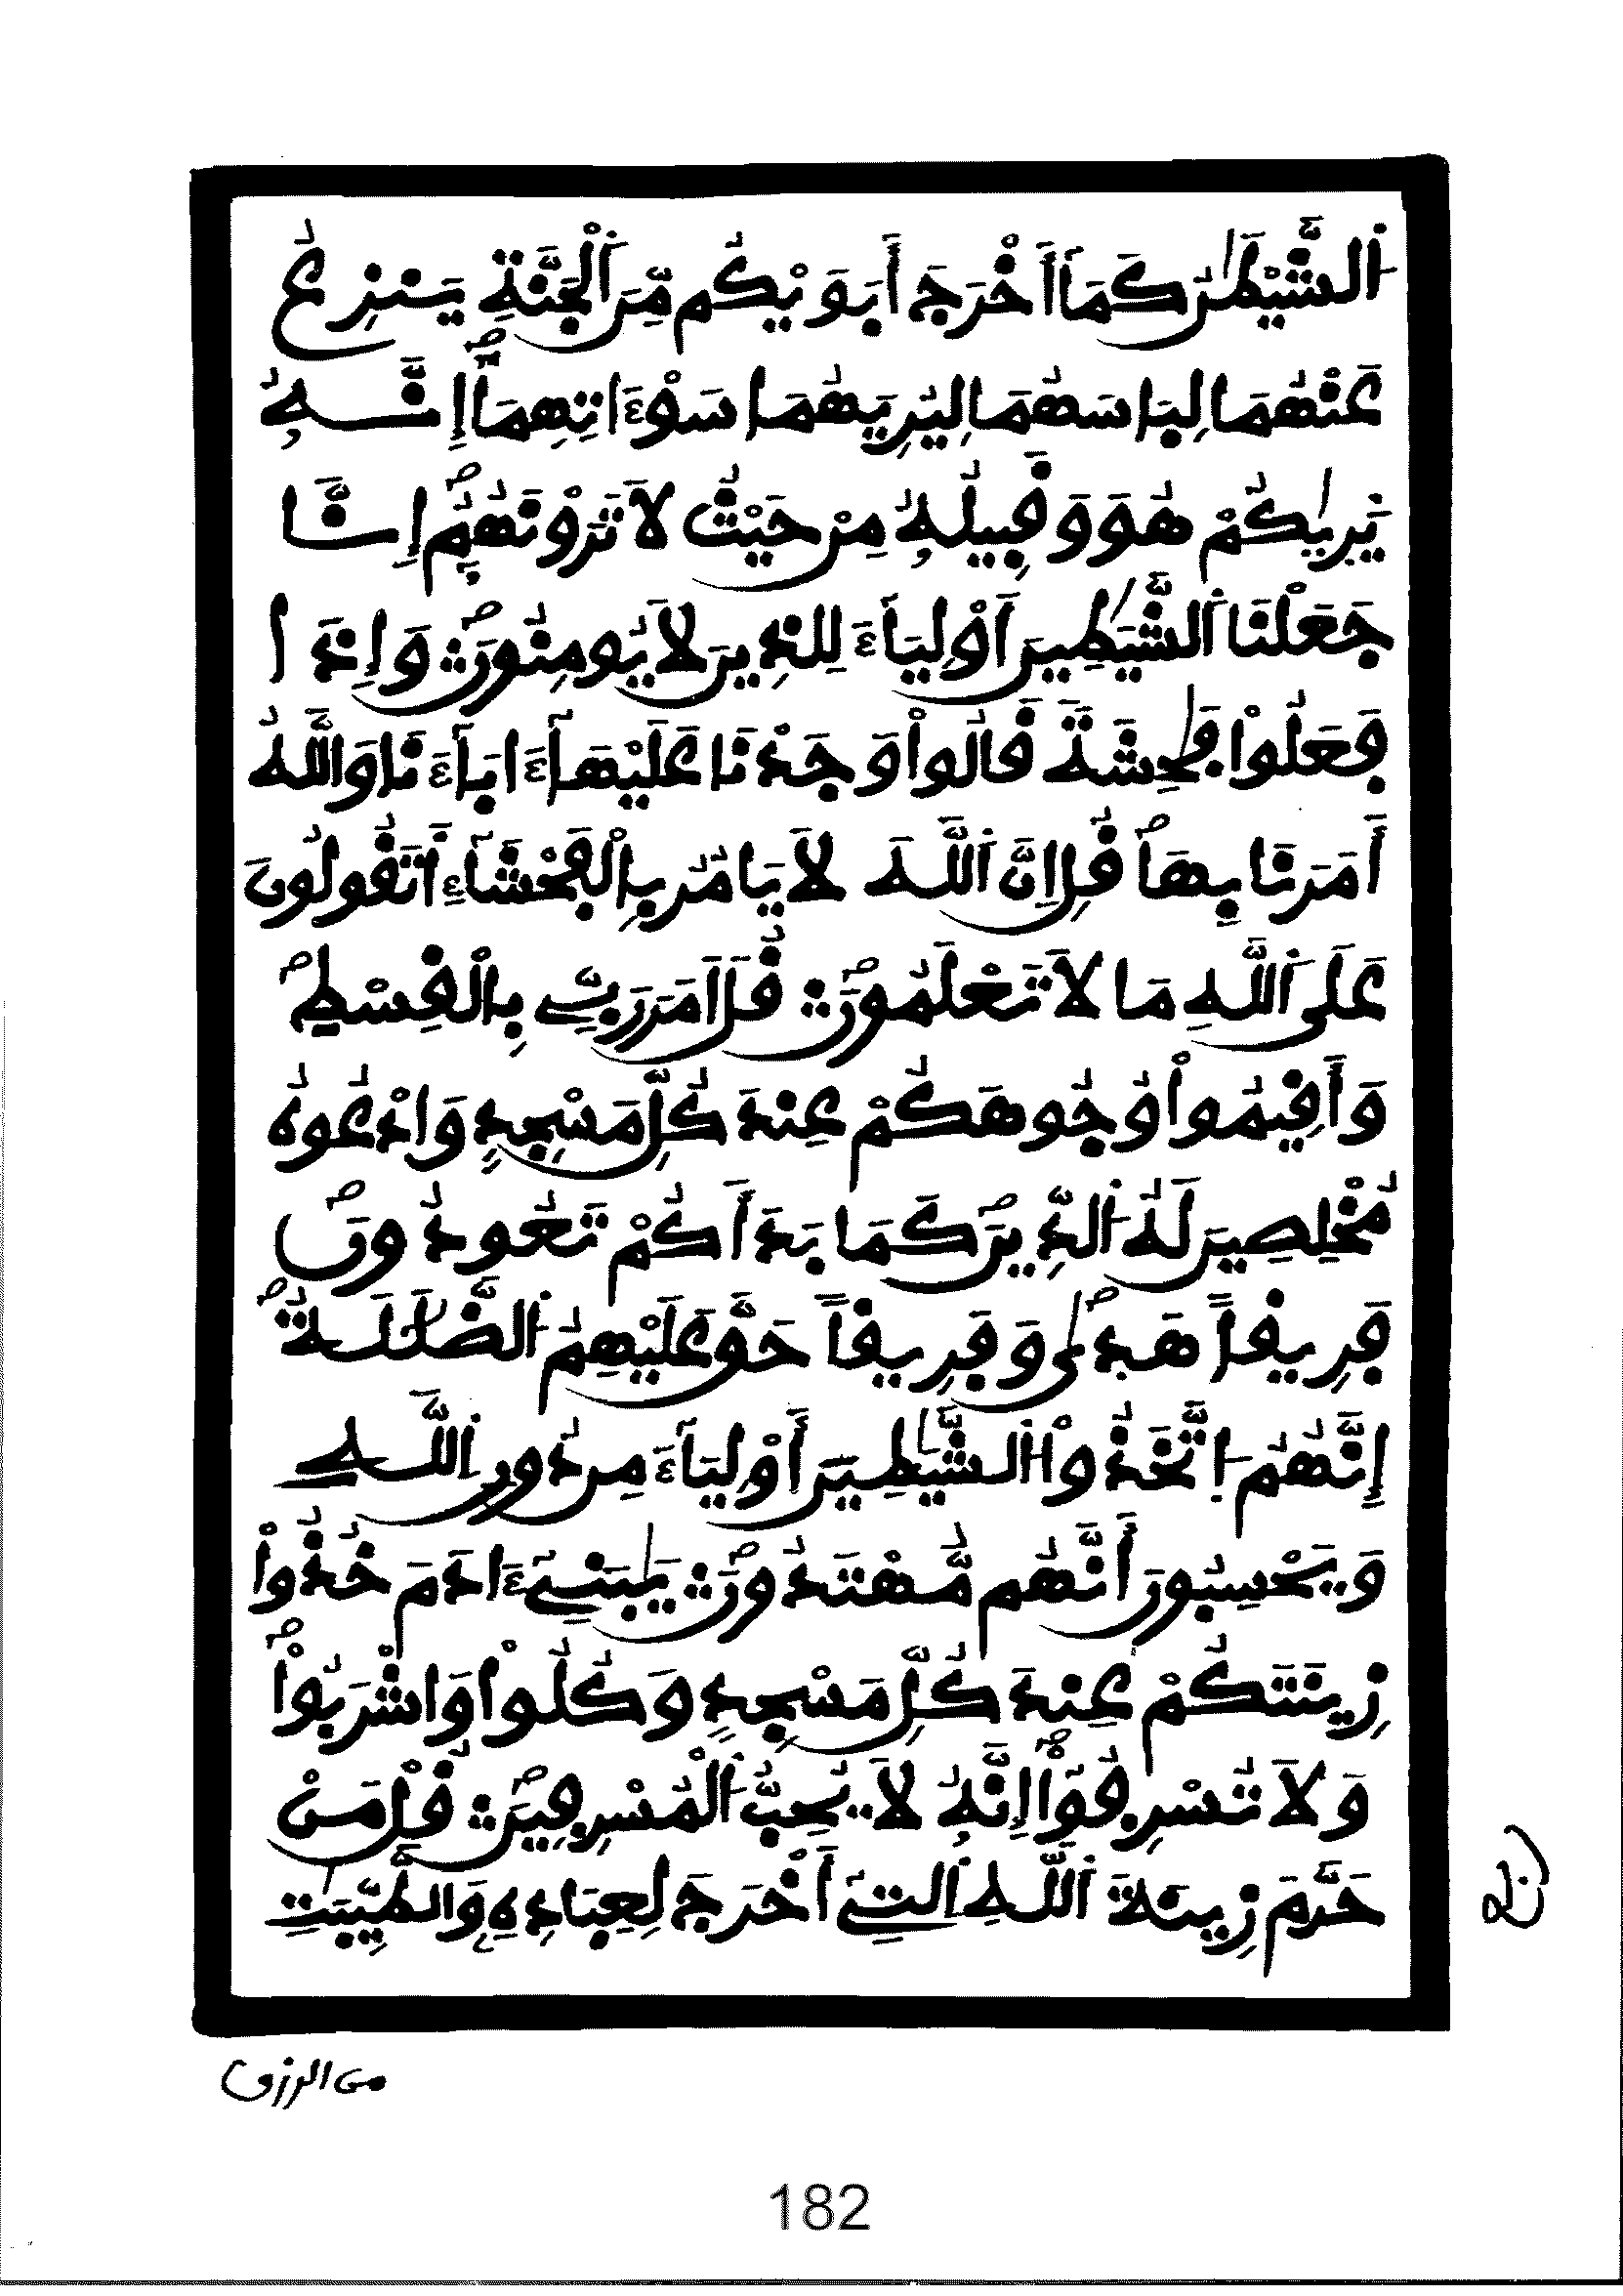 اَ۬لشَّيْطَٰنُ كَمَآ أَخْرَجَ أَبَوَيْكُم مِّنَ اَ۬لْجَنَّةِ يَنزِعُ
عَنْهُمَا لِبَاسَهُمَا لِيُرِيَهُمَا سَوْءَاتِهِمَآۖ إِنَّهُۥ
يَرىٰكُمْ هُوَ وَقَبِيلُهُۥ مِنْ حَيْثُ لَا تَرَوْنَهُمُۥۖ إِنَّا
جَعَلْنَا اَ۬لشَّيَٰطِينَ أَوْلِيَآءَ لِلذِينَ لَا يُومِنُونَۖ وَإِذَا
فَعَلُواْ فَٰحِشَةٗ قَالُواْ وَجَدْنَا عَلَيْهَآ ءَابَآءَنَا وَاللَّهُ
أَمَرَنَا بِهَاۖ قُلِ اِنَّ اَ۬للَّهَ لَا يَامُرُ بِالْفَحْشَآءِ اَ۬تَقُولُونَ
عَلَى اَ۬للَّهِ مَا لَا تَعْلَمُونَۖ قُلَ اَمَرَ رَبِّے بِالْقِسْطِۖ
وَأَقِيمُواْ وُجُوهَكُمْ عِندَ كُلِّ مَسْجِدٍ وَادْعُوهُ
مُخْلِصِينَ لَهُ اُ۬لدِّينَۖ كَمَا بَدَأَكُمْ تَعُودُونَۖ
فَرِيقاً هَدىٰ وَفَرِيقاً حَقَّ عَلَيْهِمُ اُ۬لضَّلَٰلَةُۖ
إِنَّهُمُ اُ۪تَّخَذُواْ اُ۬لشَّيَٰطِينَ أَوْلِيَآءَ مِن دُونِ اِ۬للَّهِ
وَيَحْسِبُونَ أَنَّهُم مُّهْتَدُونَۖ يَٰبَنِےٓ ءَادَمَ خُذُواْ
زِينَتَكُمْ عِندَ كُلِّ مَسْجِدٍ وَكُلُواْ وَاشْرَبُواْۖ
وَلَا تُسْرِفُوٓاْۖ إِنَّهُۥ لَا يُحِبُّ اُ۬لْمُسْرِفِينَۖ قُلْ مَنْ
حَرَّمَ زِينَةَ اَ۬للَّهِ اِ۬لتِےٓ أَخْرَجَ لِعِبَادِهِۦ وَالطَّيِّبَٰتِ
من الرزق
182